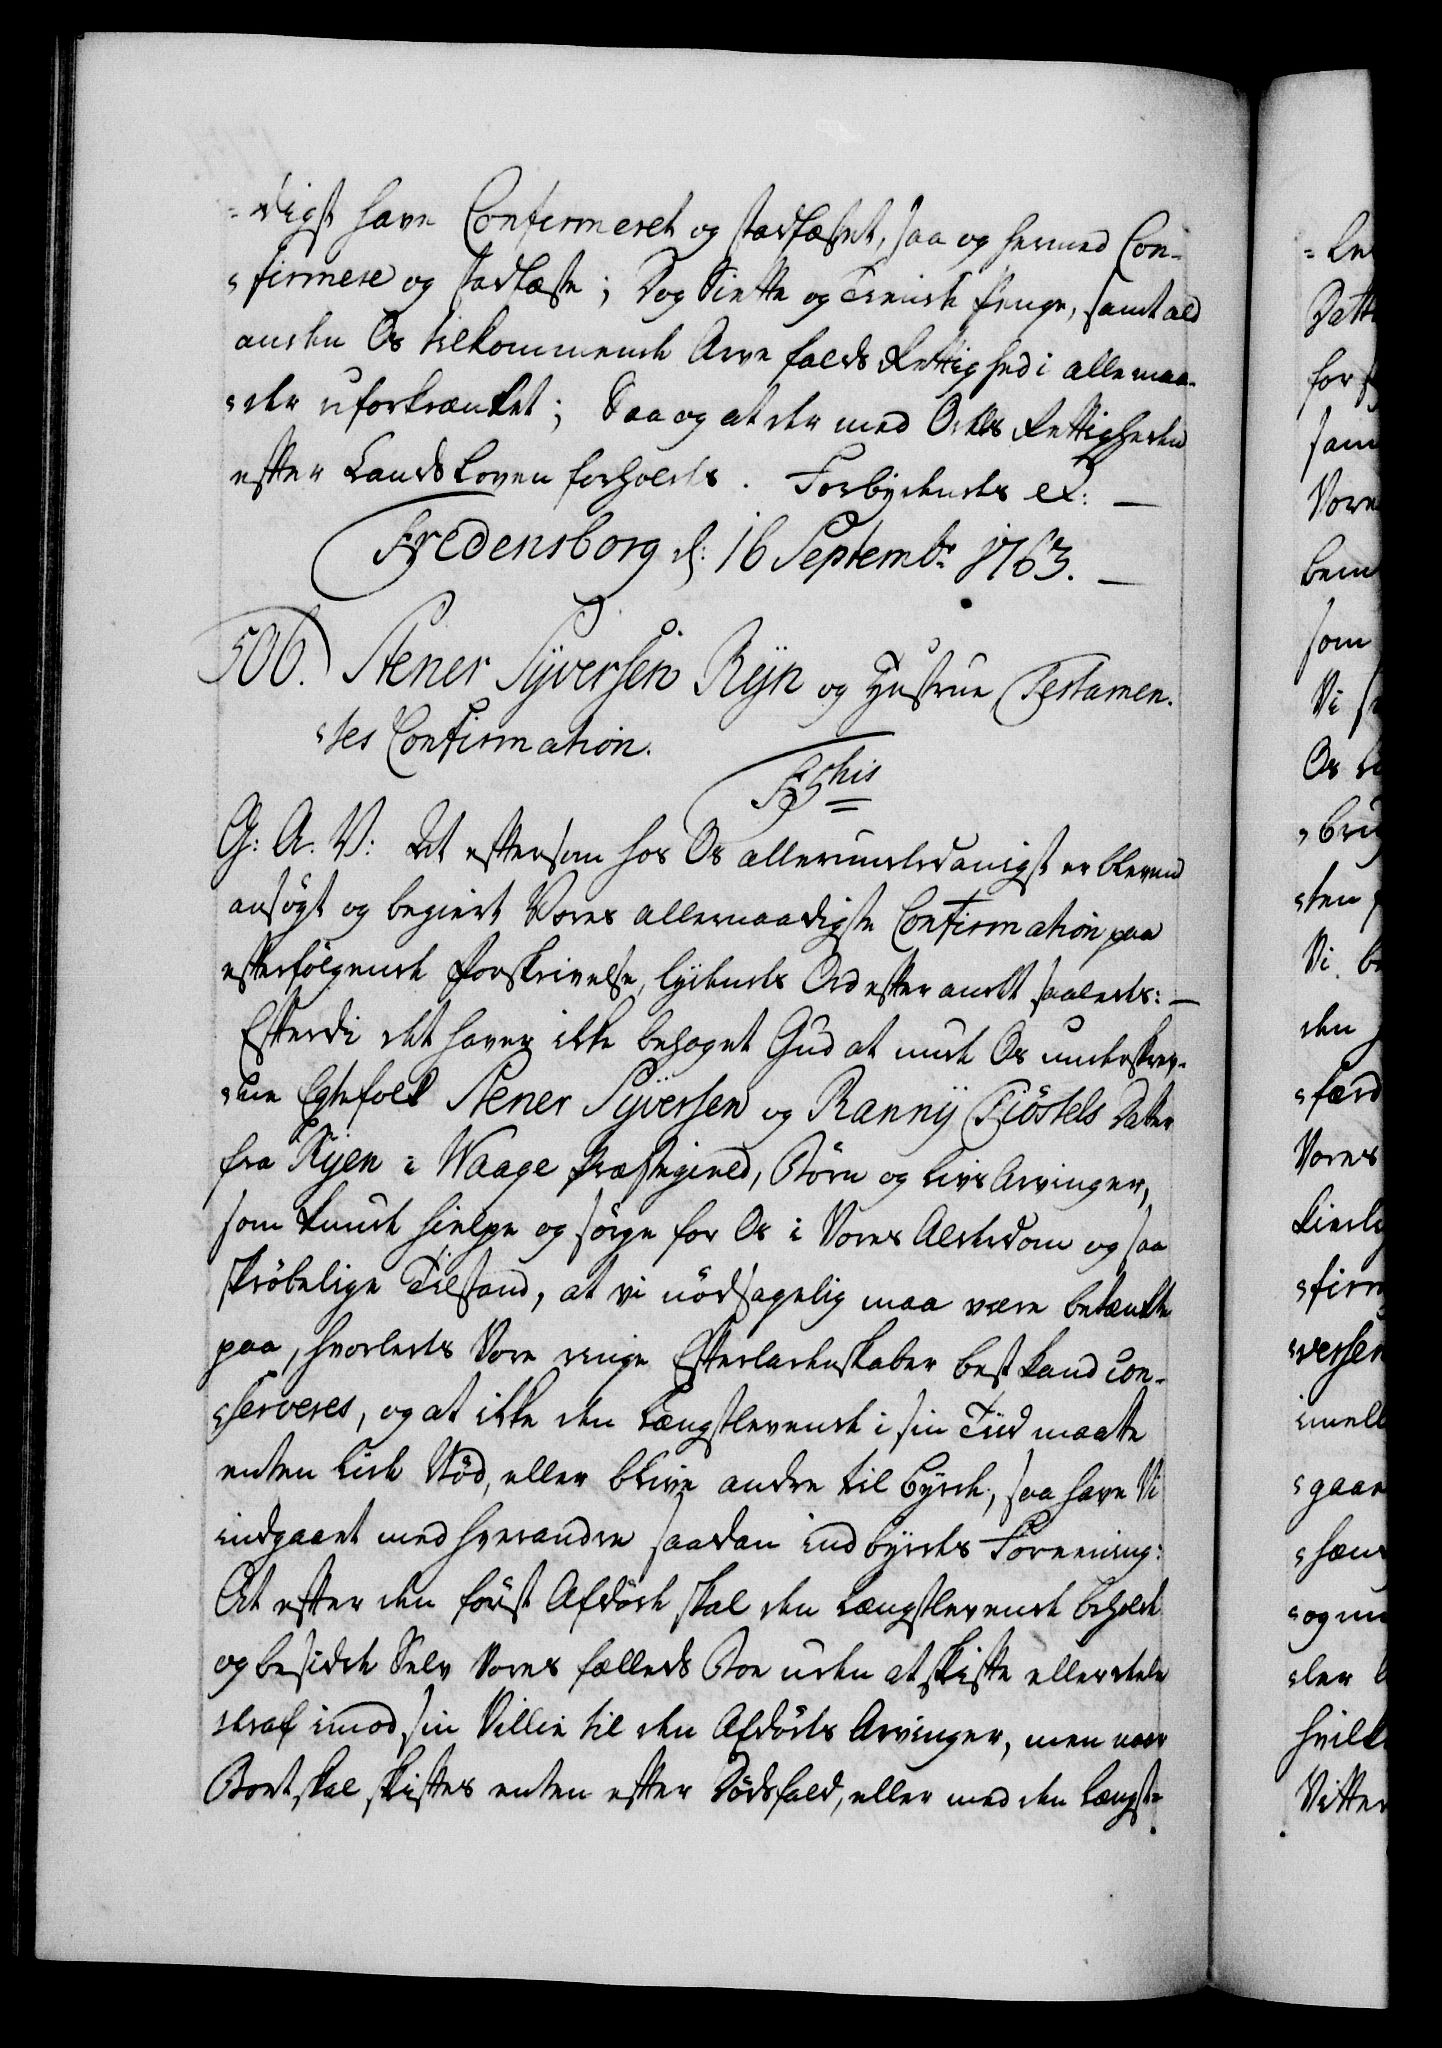 =digst have Confirmeret og stadfæstet, saa og hermed Con-
=firmere og stadfæste; Dog Siette og Tiende Penge, samt ald
anden Os tilkommende Arve falds Rettighed i alle maa-
=der uforkrænket; Saa og at der med Odels Rettigheden
efter Lands Loven forholdes. Forbydendes etc: —
Fredensborg d: 16 Septembr 1763. —
506. Stener Syversen Ryn og Hustrue Testamen-
=tes Confirmation.
G: A. V: At eftersom hos Os allerunderdanigst er bleven
ansögt og begiert Vores allernaadigste Confirmation paa
efterfölgende Forskrivelse, lydendes Ord efter andet saaledes: —
Efterdi det haver ikke behaget Gud at unde Os underskrev-
=ne Egtefolk Stener Syversen og Ranny Tiöstels Datter
fra Ryen i Waage Præstegield, Börn og Livs Arvinger,
som kunde hielpe og sörge for Os i Vores Alderdom og saa
skröbelige Tilstand, at vi nödsagelig maa være betænkte
paa, hvorledes Vore ringe Efterladenskaber best kand con-
=serveres, og at ikke den Længstlevende i sin Tiid maatte
enten lide Nöd, eller blive andre til Byrde, saa have Vi
indgaaet med hverandre saadan indbyrdes Forening:
At efter den först Afdöde skal den Længstlevende beholde
og besidde Selv Vores fælleds Boe uden at skifte eller dele
deraf imod sin Villie til den Afdödes Arvinger, men naar
Boet skal skiftes enten efter Dödsfald, eller med den Længst=
=Le
Datt
for
sam
Vore
bem
som
Vi
Os
=bru
=ten
Vi be
den
=færd
Vores
kierl
=firm
=versen
imell
=gaae
=hæn
=og
=der
hvilk
Vitter